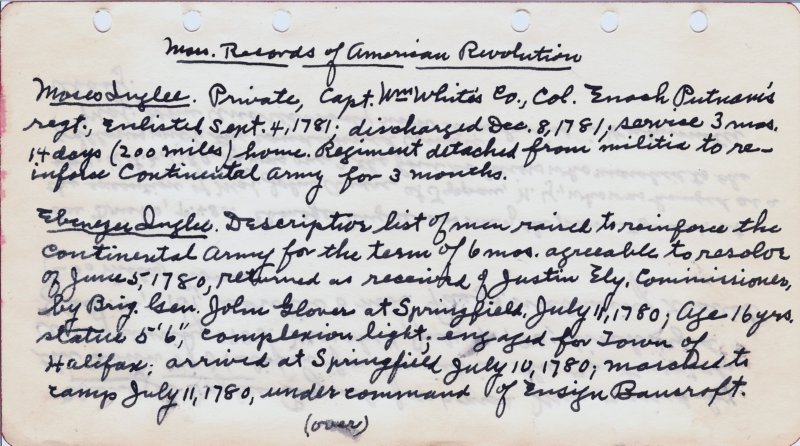 Mass. Records of American Revolution
Moses Inglee. Private, Capt. Wm White's Co., Col. Enoch Putnam's
regt., enlisted Sept. 4, 1781; discharged Dec. 8, 1781; service 3 mos.
14 days (200 miles) home. Regiment detached from militia to re-
inforce Continental Army for 3 months.
Ebenezer Inglee. Descriptive list of men raised to reinforce the
Continental Army for the term of 6 mos. agreeable to resolve
of June 5, 1780, returned as received of Justin Ely, Commissioner,
by Brig. Gen. John Glover at Springfield, July 11, 1780; Age 16 yrs.
statue 5'6", complexion light; engaged for Town of
Halifax; arrived at Springfield July 10, 1780; marched to
camp July 11, 1780, under command of Ensign Bancroft.
(over)